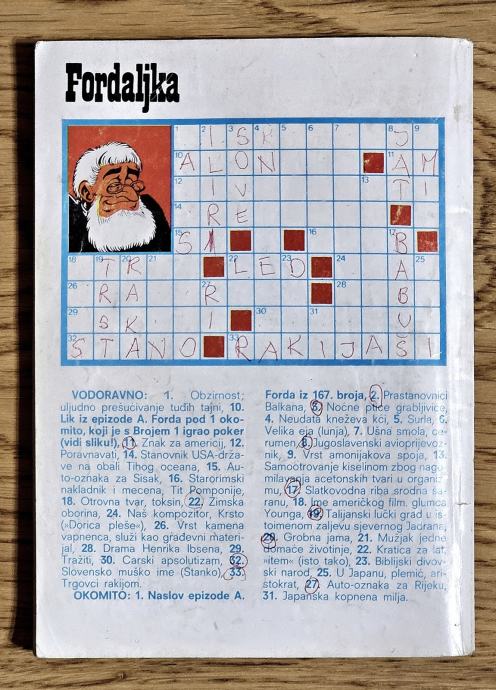 Fordaljka
1 I 2 3 S 4 K 5 6 7 8 J 9
10 A L O N 11 A M
12 I V 13 T I
14 R E
15 S I 16 17 B
18 19 T 20 R 21 22 L E 23 D 24 A 25
26 R A 27 R 28 B
29 S K I 30 31 U
32 S T A N O 33 R A K I J A Š I
VODORAVNO: 1. Obzirnost;
uljudno prešućivanje tuđih tajni, 10.
Lik iz epizode A. Forda pod 1 oko-
mito, koji je s Brojem 1 igrao poker
(vidi sliku!), 11. Znak za americij, 12.
Poravnavati, 14. Stanovnik USA-drža-
ve na obali Tihog oceana, 15. Au-
to-oznaka za Sisak, 16. Starorimski
nakladnik i mecena, Tit Pomponije,
18. Otrovna tvar, toksin, 22. Zimska
oborina, 24. Naš kompozitor, Krsto
(»Dorica pleše«), 26. Vrst kamena
vapnenca, služi kao građevni materi-
jal, 28. Drama Henrika Ibsena, 29.
Tražiti, 30. Carski apsolutizam, 32.
Slovensko muško ime (Stanko), 33.
Trgovci rakijom.
OKOMITO: 1. Naslov epizode A.
Forda iz 167. broja, 2. Prastanovnici
Balkana, 3. Noćne ptice grabljivice,
4. Neudata kneževa kći, 5. Surla, 6.
Velika eja (lunja), 7. Ušna smola, ce-
rumen, 8. Jugoslavenski avioprijevoz-
nik, 9. Vrst amonijakova spoja, 13.
Samootrovanje kiselinom zbog nago-
milavanja acetonskih tvari u organiz-
mu, 17. Slatkovodna riba srodna ša-
ranu, 18. Ime američkog film. glumca
Younga, 19. Talijanski lučki grad u is-
toimenom zaljevu sjevernog Jadrana,
20. Grobna jama, 21. Mužjak jedne
domaće životinje, 22. Kratica za lat.
»item« (isto tako), 23. Biblijski divov-
ski narod, 25. U Japanu, plemić, ari-
stokrat, 27. Auto-oznaka za Rijeku,
31. Japanska kopnena milja.